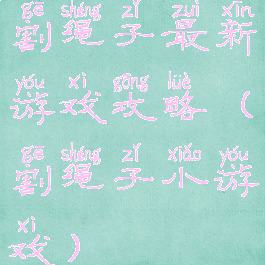 gē shéng zǐ zuì xīn
割绳子最新
yóu xì gōng lüè
游戏攻略（
gē shéng zǐ xiǎo yóu
割绳子小游
xì
戏）